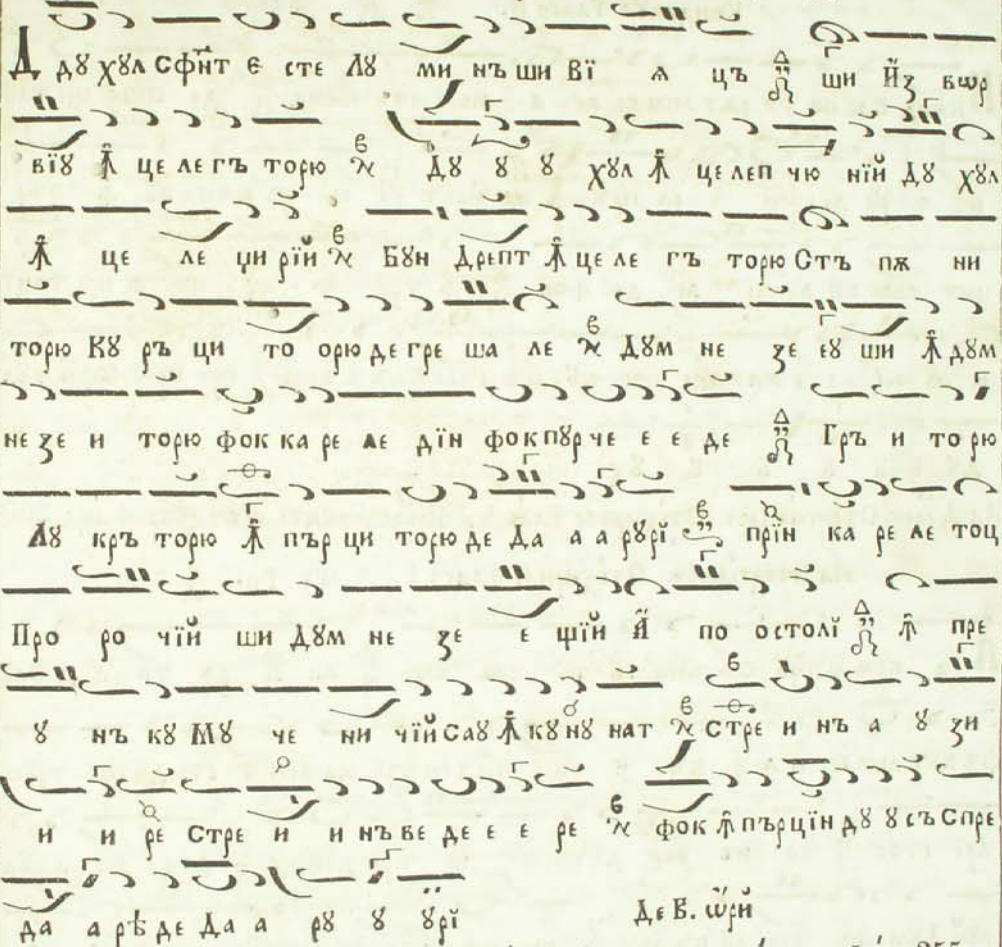 Д дꙋ хꙋл Сфнт є сте Лꙋ ми нъ ши вї ѧ цъ ши и҆з вѡр
вїꙋ ꙟ це ле гъ торю дꙋ ꙋ ꙋ хꙋл ꙟ це леп чю нїй дꙋ хꙋл
ꙟ це ле ꙟ це ле гъ торю Стъ пѫ ни
торю Кꙋ ръ ци то орю де гре ша ле Дꙋм не зе еꙋ ши ꙟ дꙋм
не зе и торю фок ка ре ле дїн фок пꙋр че е е де Гръ и то рю
Лꙋ кръ торю ꙟ пър ци торю де Да а а рꙋрї прїн ка ре ле тоц
Про ро чїй ши Дꙋм не зе е щїй а҆ по о столї ꙟ пре
ꙋ нъ кꙋ Мꙋ че ни чїй Саꙋ ꙟ кꙋ нꙋ нат Стре и нъ а ꙋ зи
и и ре Стре и и нъ ве де е е ре фок ꙟ пър цїн дꙋ ꙋ съ Спре
да а рѣ де Да а рꙋ ꙋ ꙋрї Де в. ѡ҆рй